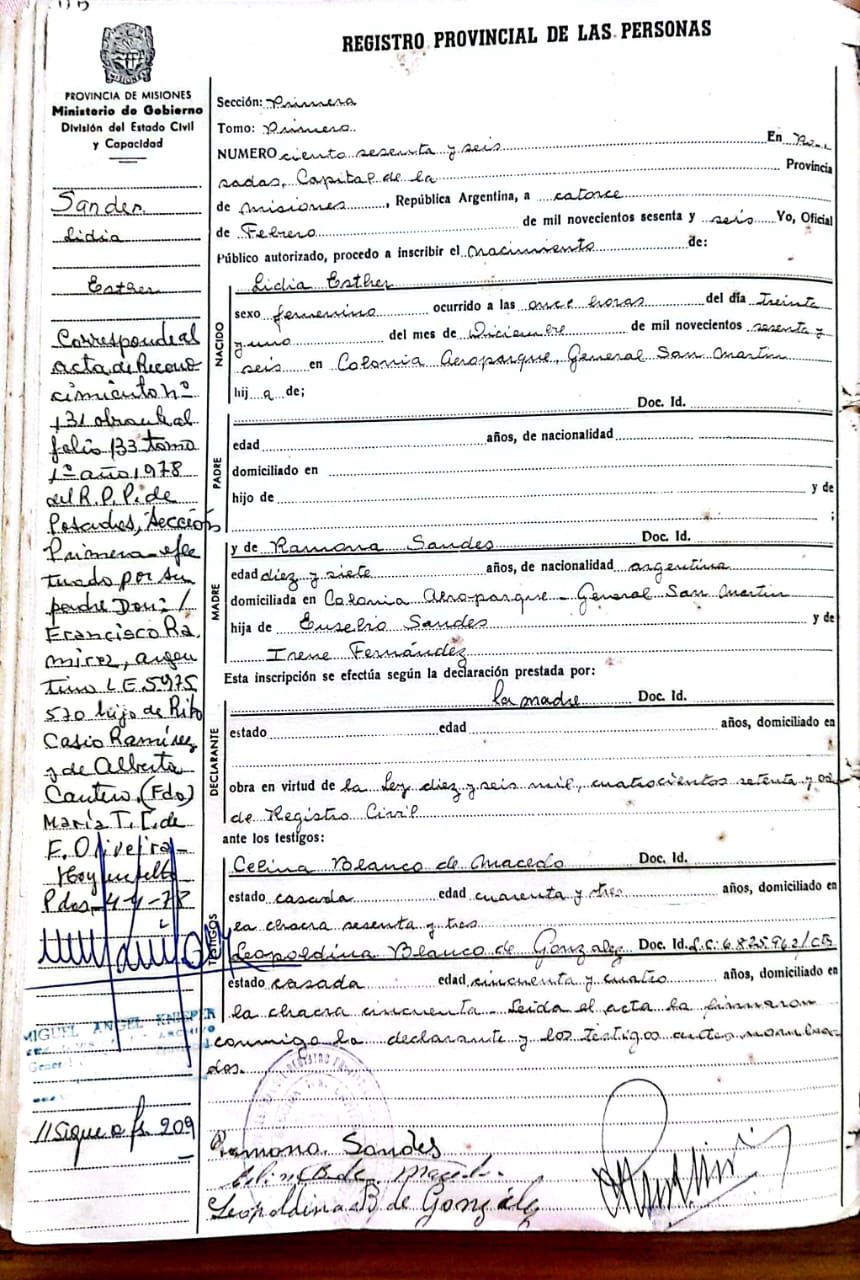 REGISTRO PROVINCIAL DE LAS PERSONAS
PROVINCIA DE MISIONES
Ministerio de Gobierno
División del Estado Civil
y Capacidad
Sandes
Lidia
Esther
Corresponde al
acta de Recono
cimiento nº
131 obrante al
folio 133 tomo
1º año 1978
del R.P.P. de
Posadas, Sección
Primera efec
tuado por su
padre Don: /
Francisco Ra
mirez, argen
tino L.E. 5975
570 hijo de Rito
Casio Ramírez
y de Alberta
Cantero. (Fdo)
María T. C. de
F. Oliveira-
Pdas-4-4-78
MIGUEL ANGEL KNIEPER
General
//Sigue a fs. 209
Sección: Primera
Tomo: Primero
NUMERO ciento sesenta y seis En Po-
sadas, Capital de la Provincia
de misiones, República Argentina, a catorce
de Febrero de mil novecientos sesenta y seis Yo, Oficial
Público autorizado, procedo a inscribir el nacimiento de:
NACIDO
Lidia Esther
sexo femenino ocurrido a las once horas del día treinta
y uno del mes de Diciembre de mil novecientos sesenta y
seis en Colonia Aeroparque, General San Martin
hij a de;
PADRE
Doc. Id.
edad años, de nacionalidad
domiciliado en
hijo de y de
;
MADRE
y de Ramona Sandes Doc. Id.
edad diez y siete años, de nacionalidad argentina
domiciliada en Colonia Aeroparque - General San Martin
hija de Euselio Sandes y de
Irene Fernández
Esta inscripción se efectúa según la declaración prestada por:
DECLARANTE
la madre Doc. Id.
estado edad años, domiciliado en
obra en virtud de la Ley diez y seis mil, cuatrocientos setenta y
de Registro Civil
ante los testigos:
TESTIGOS
Celina Blanco de Macedo Doc. Id.
estado casada edad cuarenta y tres años, domiciliado en
la chacra sesenta y tres
Leopoldina Blanco de Gonzalez Doc. Id. L.C. 6.825.962/CB
estado casada edad cincuenta y cuatro años, domiciliado en
la chacra cincuenta. Leida el acta la firmaron
conmigo la declarante y los testigos antes nombra-
dos.
Ramona Sandes
Leopoldina B de Gonzálz